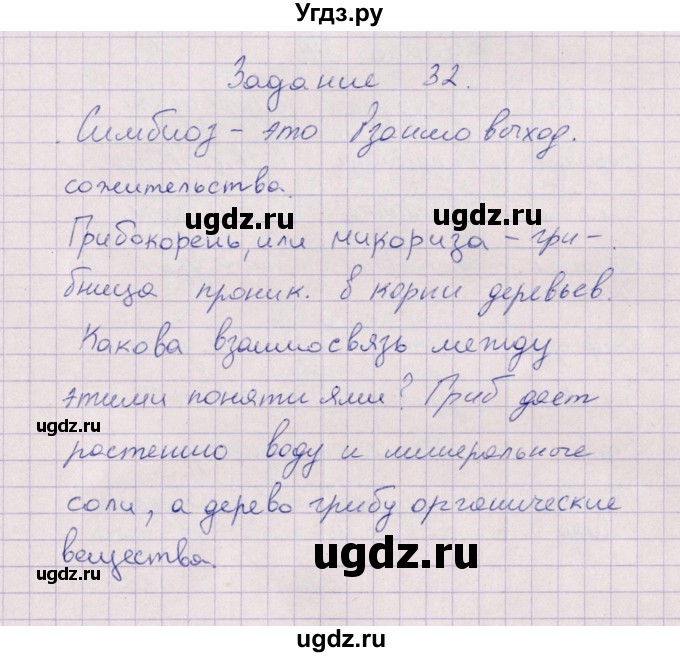 Угдз.ру
Задание 32.
Симбиоз - это Взаимовыход.
сожительства.
ugdz.ru ugdz.ru
Грибокорень, или микориза - гри-
бница проник. в корни деревьев.
Какова взаимосвязь между
этими понятиями? Гриб дает
ugdz.ru
растению воду и минеральные
соли, а дерево грибу органические
ugdz.ru ugdz.ru
вещества.
ugdz.ru